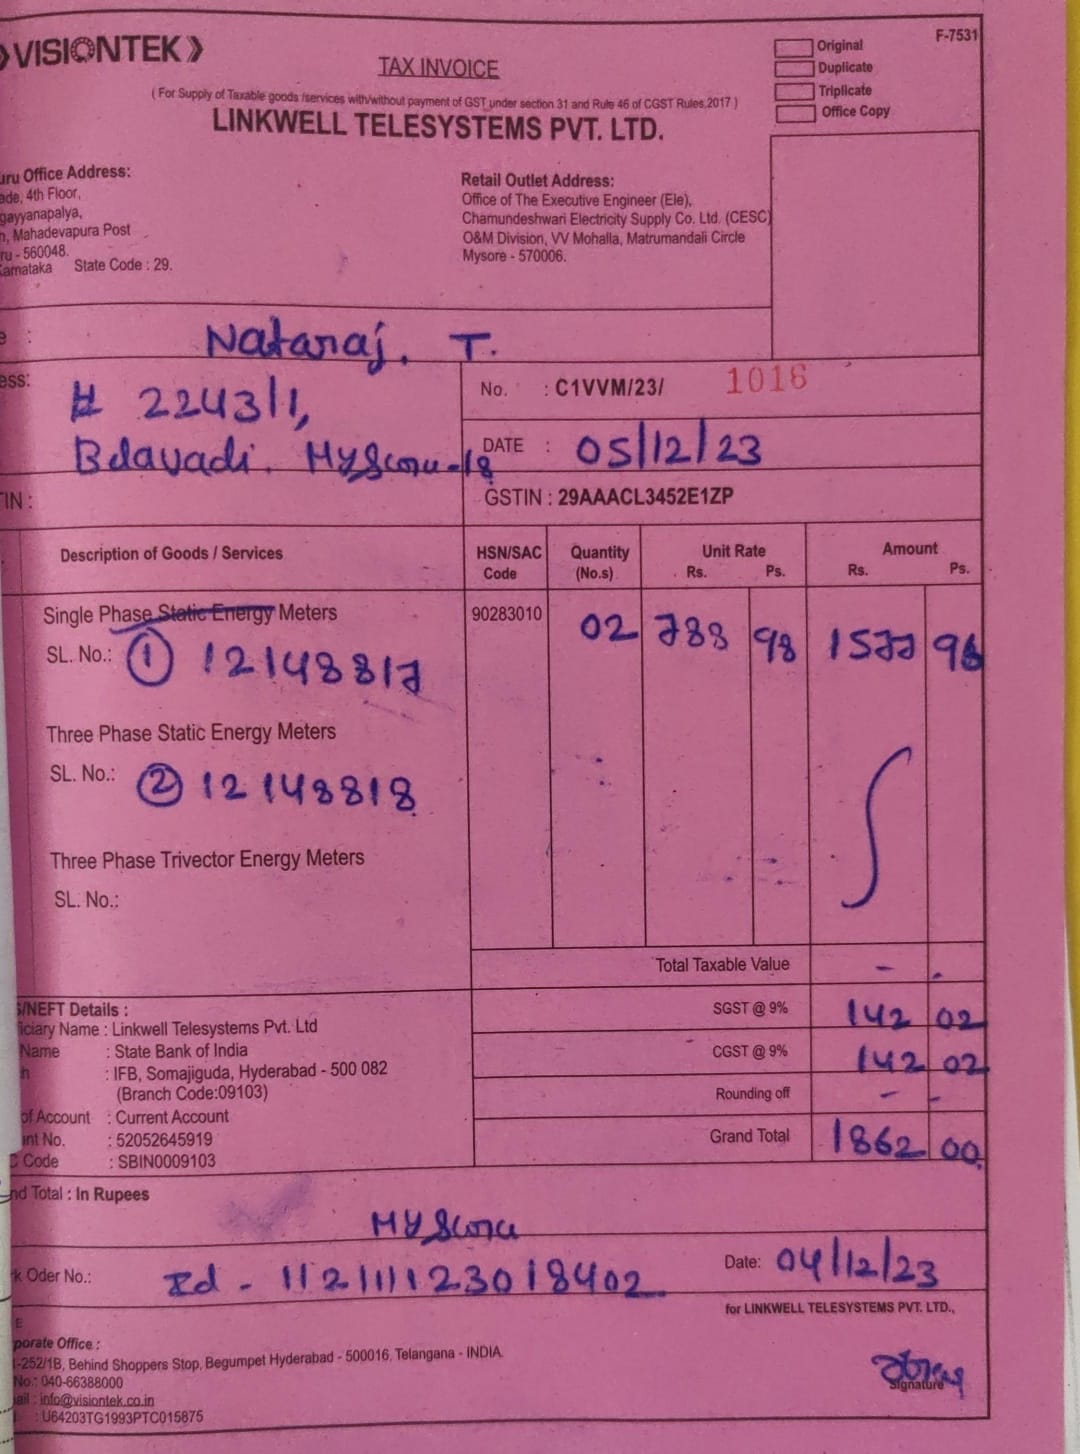 VISIONTEK
F-7531
TAX INVOICE
Original
Duplicate
Triplicate
Office Copy
( For Supply of Taxable goods /services with/without payment of GST under section 31 and Rule 46 of CGST Rules,2017 )
LINKWELL TELESYSTEMS PVT. LTD.
uru Office Address:
ade, 4th Floor,
gayyanapalya,
n, Mahadevapura Post
ru - 560048.
Karnataka State Code : 29.
Retail Outlet Address:
Office of The Executive Engineer (Ele),
Chamundeshwari Electricity Supply Co. Ltd. (CESC)
O&M Division, VV Mohalla, Matrumandali Circle
Mysore - 570006.
e : Nataraj. T.
ess: # 2243/1,
Belavadi. Mysoru-18
No. : C1VVM/23/ 1016
DATE : 05/12/23
TIN :
GSTIN : 29AAACL3452E1ZP
Description of Goods / Services HSN/SAC Code Quantity (No.s) Unit Rate Rs. Ps. Amount Rs. Ps.
Single Phase Static Energy Meters 90283010 02 788 98 1577 96
SL. No.: ① 12148817
Three Phase Static Energy Meters
SL. No.: ② 12148818
Three Phase Trivector Energy Meters
SL. No.:
Total Taxable Value - -
SGST @ 9% 142 02
CGST @ 9% 142 02
Rounding off - -
Grand Total 1862 00
S/NEFT Details :
iciary Name : Linkwell Telesystems Pvt. Ltd
Name : State Bank of India
h : IFB, Somajiguda, Hyderabad - 500 082
(Branch Code:09103)
of Account : Current Account
unt No. : 52052645919
C Code : SBIN0009103
nd Total : In Rupees
Mysoru
k Oder No.: Rd - 1121111123018402
Date: 04/12/23
for LINKWELL TELESYSTEMS PVT. LTD.,
E
porate Office :
-252/1B, Behind Shoppers Stop, Begumpet Hyderabad - 500016, Telangana - INDIA.
No.: 040-66388000
ail : info@visiontek.co.in
: U64203TG1993PTC015875
Signature